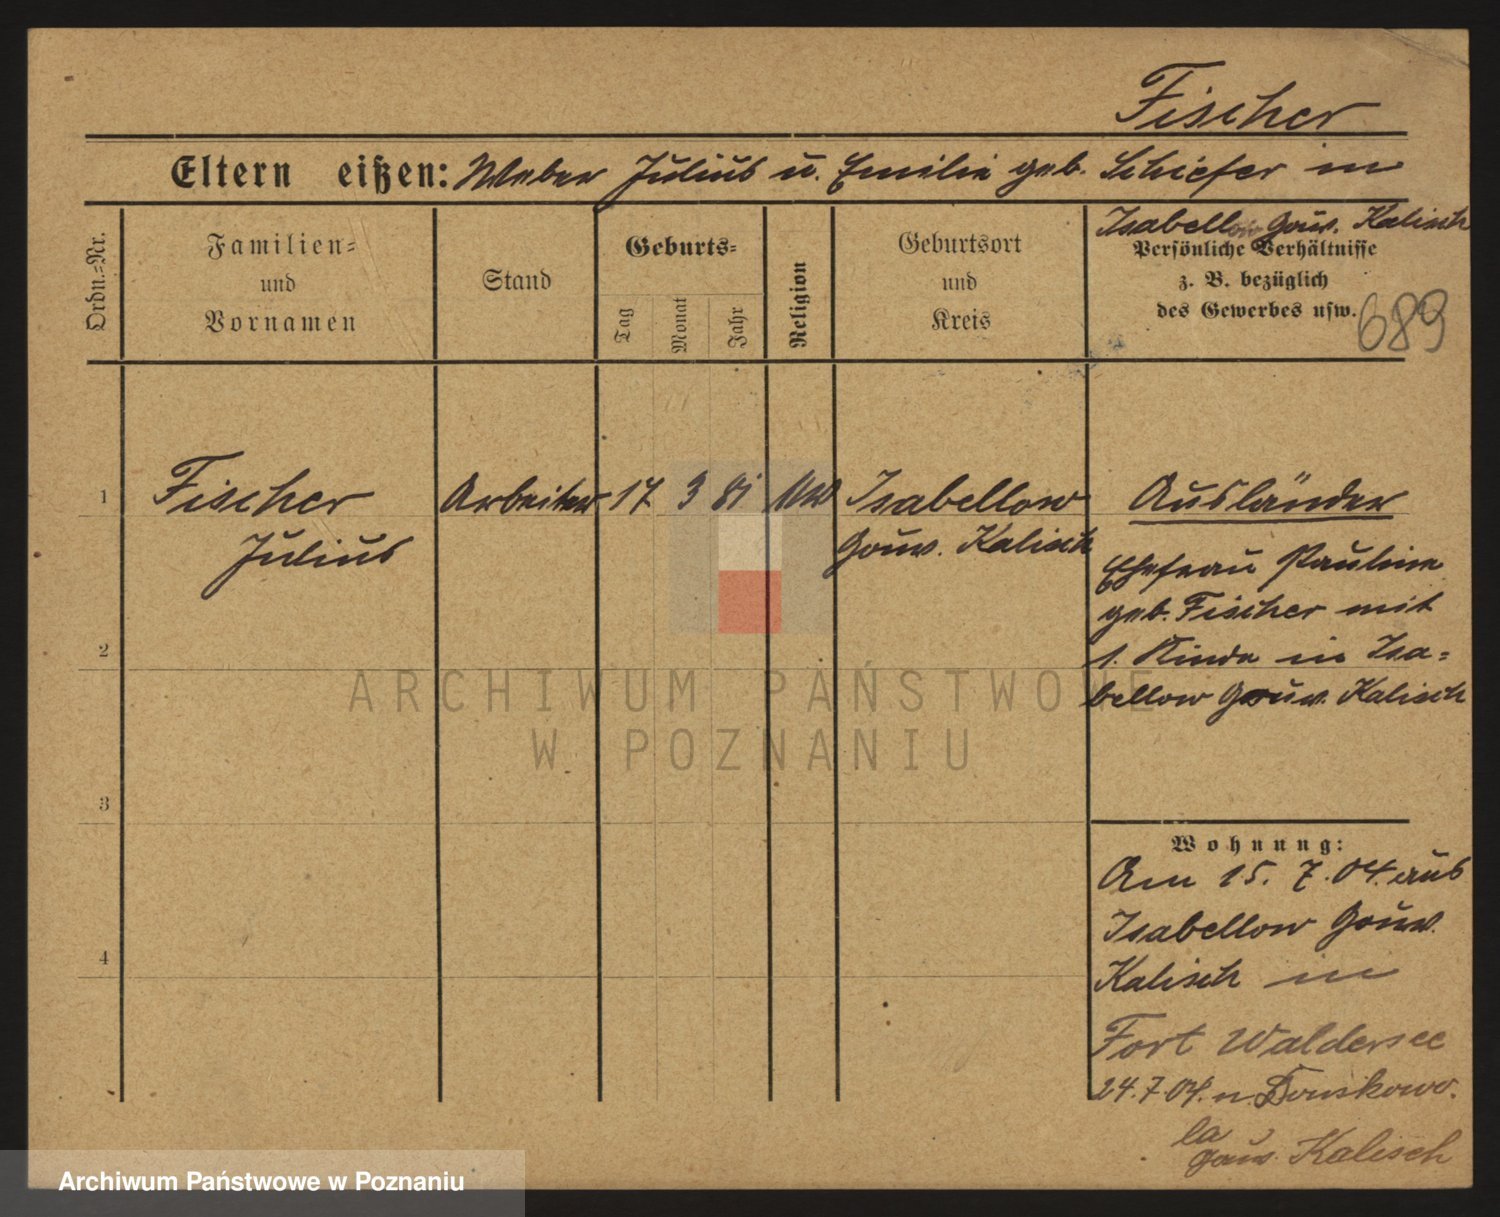 Fischer
Eltern eißen: Weber Julius u. Emilie geb. Schiefer in
Isabellow Gouv. Kalisch
Ordn.=Nr.
Familien=
und
Vornamen
Stand
Geburts=
Tag
Monat
Jahr
Religion
Geburtsort
und
Kreis
Persönliche Verhältnisse
z. B. bezüglich
des Gewerbes usw.
689
1 Fischer Arbeiter 17 3 81 Isabellow Ausländer
Julius Gouv. Kalisch
Ehefrau Pauline
geb. Fischer mit
1. Kinde in Isa=
bellow Gouv. Kalisch
2
3
4
Wohnung:
Am 15. 7. 04. aus
Isabellow Gouv.
Kalisch in
Fort Waldersee
24.7.04. n.
Gouv. Kalisch
ARCHIWUM PAŃSTWOWE
W POZNANIU
Archiwum Państwowe w Poznaniu